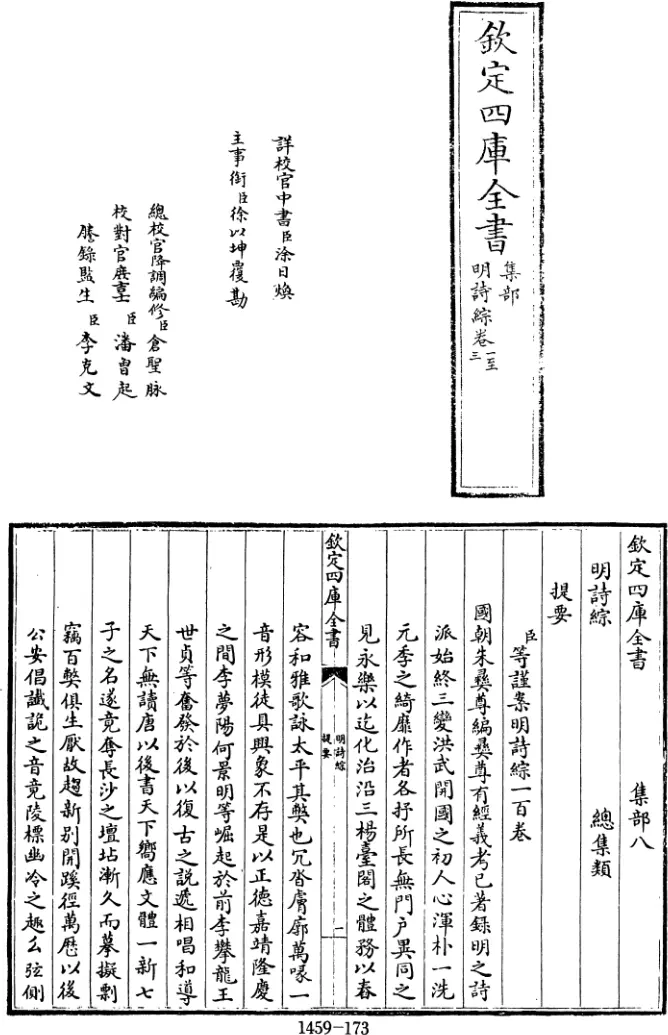 欽定四庫全書
集部
明詩綜卷一至
三
詳校官中書臣涂日煥
主事銜臣徐以坤覆勘
總校官降調編修臣倉聖脉
校對官庶吉士臣潘曾起
謄錄監生臣李克文
欽定四庫全書 集部八
明詩綜 總集類
提要
臣等謹案明詩綜一百卷
國朝朱彝尊編彝尊有經義考已著録明之詩
派始終三變洪武開國之初人心渾朴一洗
元季之綺靡作者各抒所長無門户異同之
見永樂以迄化治沿三楊臺閣之體務以舂
欽定四庫全書
明詩綜
提要
一
容和雅歌詠太平其弊也冗沓膚廓萬喙一
音形模徒具興象不存是以正德嘉靖隆慶
之間李夢陽何景明等崛起於前李攀龍王
世貞等奮發於後以復古之説遞相唱和導
天下無讀唐以後書天下嚮應文體一新七
子之名遂竟奪長沙之壇坫漸久而摹擬剽
竊百弊俱生厭故趨新别開蹊徑萬厯以後
公安倡纎詭之音竟陵標幽冷之趣么弦側
1459-173